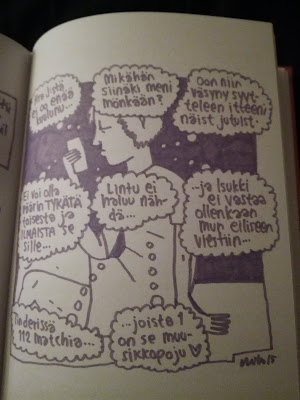 ei oo enää
kuulunu...
Mikähän
siinäki meni
mönkään?
Oon niin
väsyny syyt-
teleen itteeni
näist jutuist...
Ei voi olla
väärin TYKÄTÄ
toisesta ja
ILMAISTA se
sille...
Lintu ei
haluu näh-
dä...
...ja Isukki
ei vastaa
ollenkaan
mun eiliseen
viestiin...
Tinderissä
112 matchia...
...joista 1
on se muu-
sikkopoju ♡